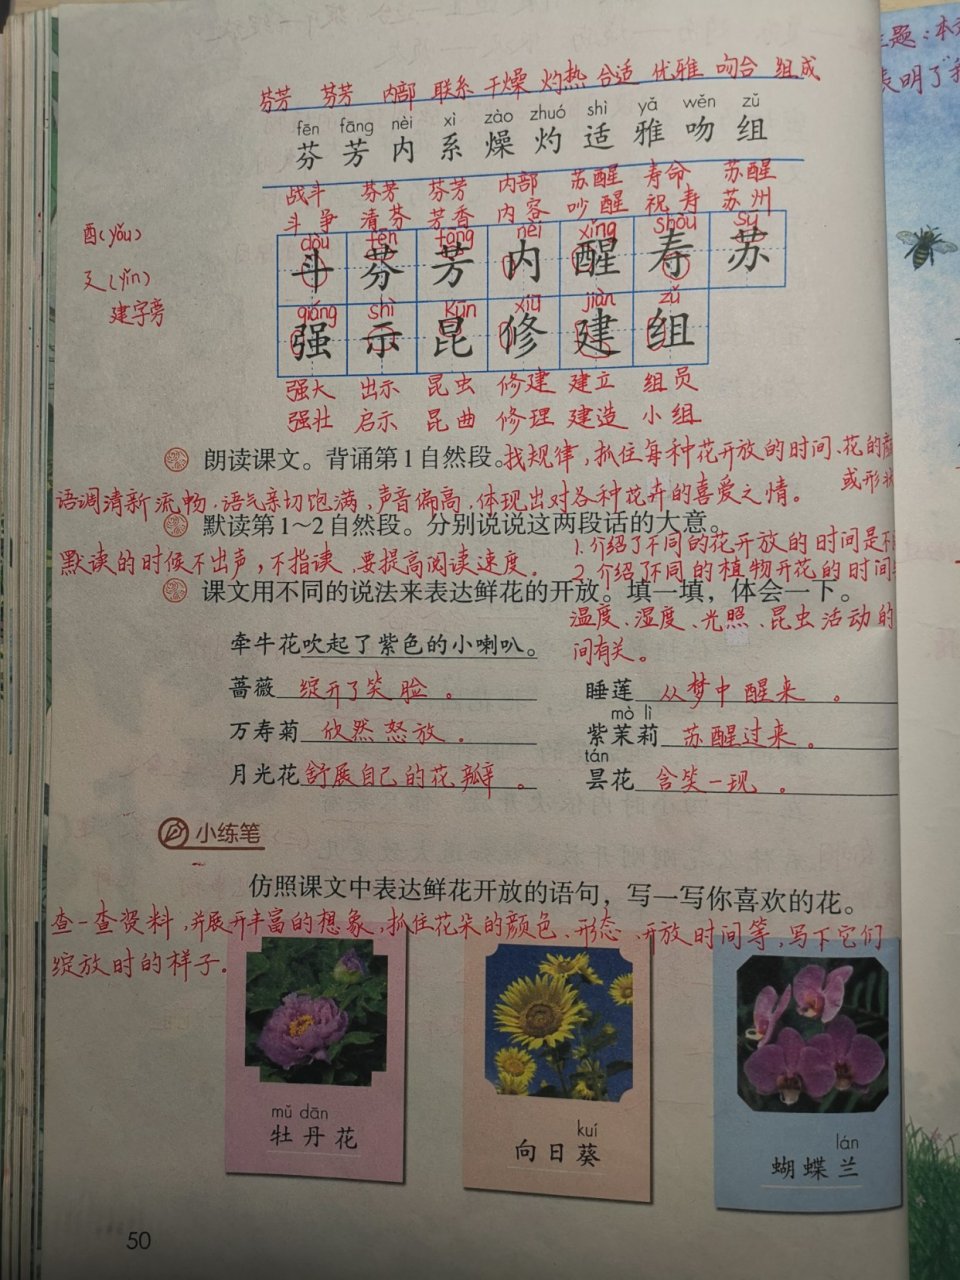 主题:本
表明了"
芬芳 芬芳 内部 联系 干燥 灼热 合适 优雅 吻合 组成
fēn fāng nèi xì zào zhuó shì yǎ wěn zǔ
芬 芳 内 系 燥 灼 适 雅 吻 组
战斗 芬芳 芬芳 内部 苏醒 寿命 苏醒
斗争 清芬 芳香 内容 吵醒 祝寿 苏州
dòu fēn fāng nèi xǐng shòu sū
斗 芬 芳 内 醒 寿 苏
酉(yǒu)
廴(yǐn)
建字旁
qiáng shì kūn xiū jiàn zǔ
强 示 昆 修 建 组
强大 出示 昆虫 修建 建立 组员
强壮 启示 昆曲 修理 建造 小组
朗读课文。背诵第1自然段。
找规律,抓住每种花开放的时间、花的颜
或形状
语调清新流畅,语气亲切饱满,声音偏高,体现出对各种花卉的喜爱之情。
默读第1~2自然段。分别说说这两段话的大意。
默读的时候不出声,不指读,要提高阅读速度。
1.介绍了不同的花开放的时间是不
2.介绍了不同的植物开花的时间
温度、湿度、光照、昆虫活动的
间有关。
课文用不同的说法来表达鲜花的开放。填一填,体会一下。
牵牛花吹起了紫色的小喇叭。
蔷薇绽开了笑脸。 睡莲从梦中醒来。
mò lì
万寿菊欣然怒放。 紫茉莉苏醒过来。
tán
月光花舒展自己的花瓣。 昙花含笑一现。
小练笔
仿照课文中表达鲜花开放的语句,写一写你喜欢的花。
查一查资料,并展开丰富的想象,抓住花朵的颜色、形态、开放时间等,写下它们
绽放时的样子。
mǔ dān
牡丹花
kuí
向日葵
lán
蝴蝶兰
50